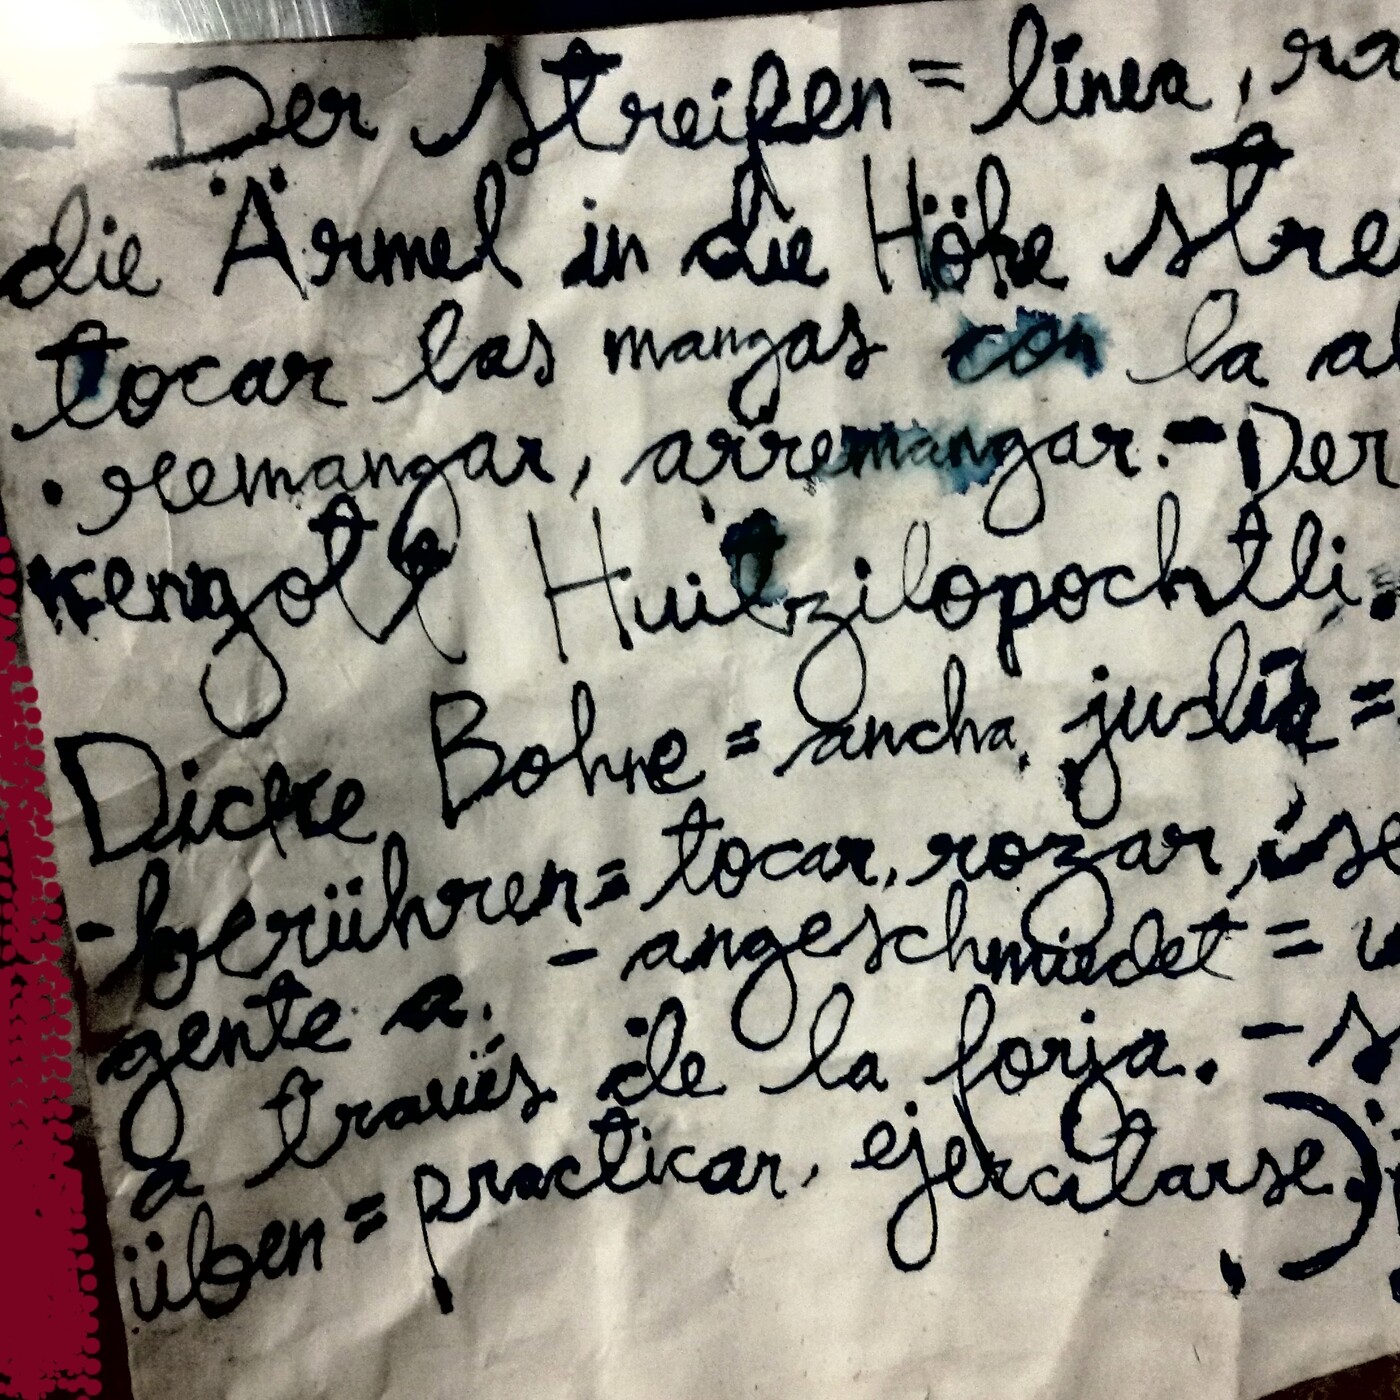 - Der Streifen = línea, ra
die Ärmel in die Höhe stre
tocar las mangas con la al
. remangar, arremangar. - Der
kengott Huitzilopochtli.
Dicke Bohne = ancha, judía =
- berühren = tocar, rozar,
gente a. - angeschmiedet =
a través de la forja. - s
üben = practicar, ejercitarse.)